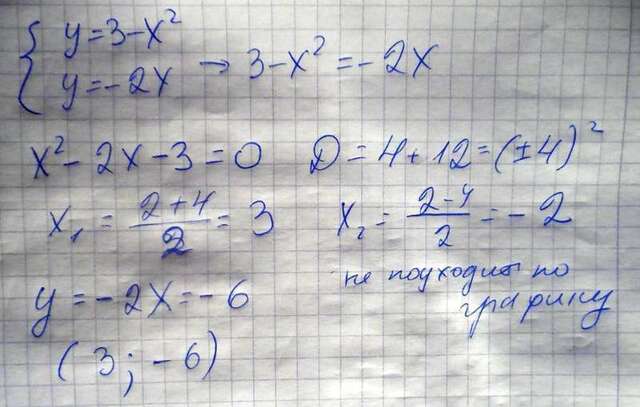 y = 3 - x²
y = -2x → 3 - x² = -2x
x² - 2x - 3 = 0 D = 4 + 12 = (±4)²
x₁ = (2+4)/2 = 3 x₂ = (2-4)/2 = -2
не подходит по
графику
y = -2x = -6
(3; -6)